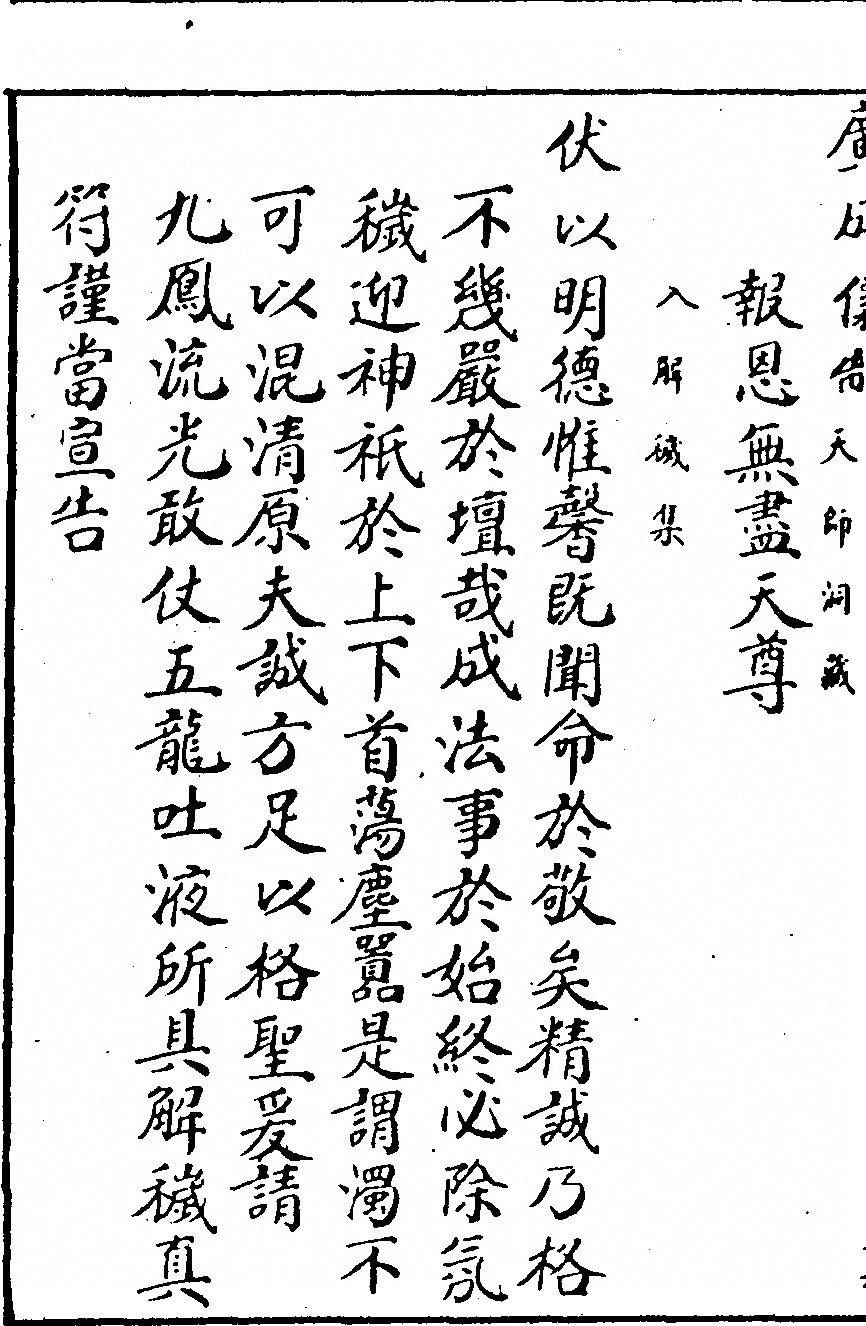 廣成儀告天師洞藏
報恩無盡天尊
入解穢集
伏以明德惟馨既聞命於敬矣精誠乃格
不幾嚴於壇哉成法事於始終必除氛
穢迎神祇於上下首蕩塵囂是謂濁不
可以混清原夫誠方足以格聖爰請
九鳳流光敢仗五龍吐液所具解穢真
符謹當宣告